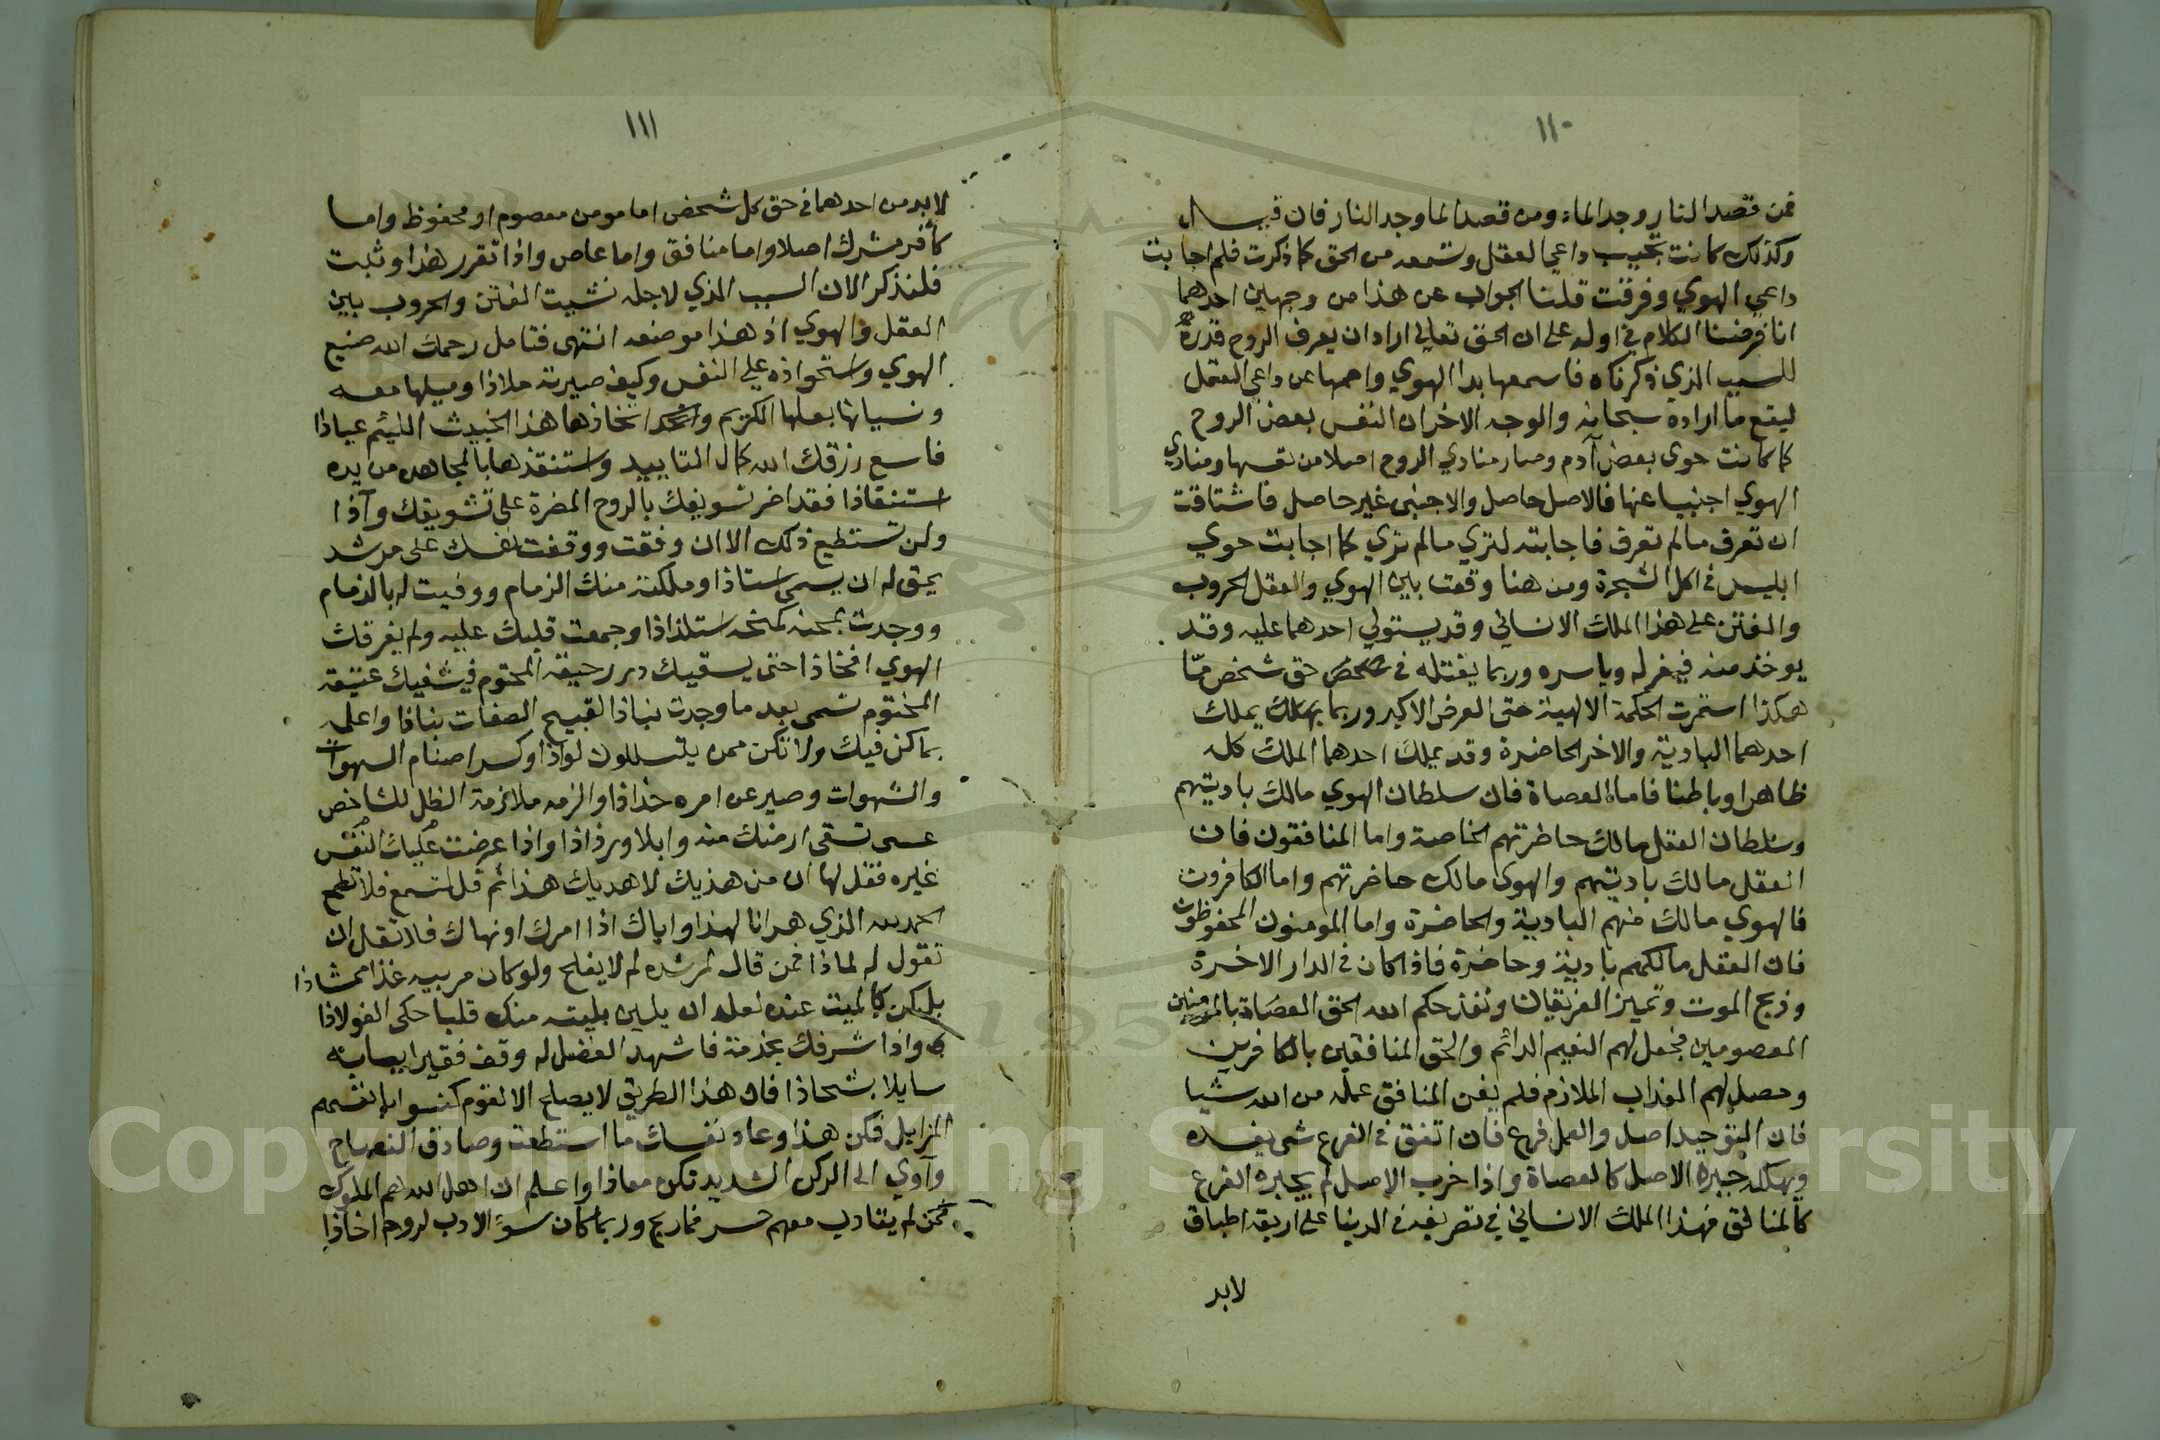 ١١٠
فمن قصد النار وجد الماء ومن قصد الما وجد النار فان قيل
وكذلك كانت تجيب داعي العقل وتسمعه من الحق كما ذكرت فلم اجابت
داعي الهوي وفرقت قلنا الجواب عن هذا من وجهين احدهما
انا فرضنا الكلام في اوله على ان الحق تعالي اراد ان يعرف الروح قدره
للسبب الذي ذكرناه فاسمعها بدا الهوي واصمها عن داعي العقل
ليقع ما اراده سبحانه والوجه الاخر ان النفس بعض الروح
كما كانت حوي بعض آدم وصار منادي الروح اصلا من نفسها ومنادي
الهوي اجنبيا عنها فالاصل حاصل والاجنبى غير حاصل فاشتاقت
ان تعرف مالم تعرف فاجابته لتري مالم تري كما اجابت حوي
ابليس في اكل الشجرة ومن هنا وقعت بين الهوي والعقل الحروب
والفتن على هذا الملك الانساني وقد يستولي احدهما عليه وقد
يوخذ منه فيغرله وياسره وربما يقتله في حق شخص مّا
هكذا استمرت الحكمة الالهية حتى العرض الاكبر وربما يملك
احدهما البادية والاخر الحاضرة وقد يملك احدهما الملك كله
ظاهرا وباطنا فاما العصاة فان سلطان الهوي مالك باديتهم
وسلطان العقل مالك حاضرتهم الخاصة واما المنافقون فان
العقل مالك باديتهم والهوي مالك حاضرتهم واما الكافرون
فالهوي مالك منهم البادية والحاضرة واما المومنون المحفوظون
فان العقل مالكهم بادية وحاضرة فاذا كان في الدار الاخرة
وذبح الموت وتميز الفريقان ونفذ حكم الله الحق العصاة بالمومنين
المعصومين فجعل لهم النعيم الدائم والحق المنافقين بالكافرين
وحصل لهم العذاب الملازم فلم يغن المنافق عمله من الله شيا
فان التوحيد اصل والعمل فرع فان اتفق في الفرع شي يفسده
ويهلكه جبره الاصل كالعصاة واذا خرب الاصل لم يجبره الفرع
كالمنافق فهذا الملك الانساني في تصريفه في الدنيا على اربعة اطباق
لابد
١١١
لابد من احدهما في حق كل شخص اما مومن معصوم او محفوظ واما
كافر مشرك اصلا واما منافق واما عاص واذا تقرر هذا وثبت
فلنذكر الان السبب الذي لاجله نشبت الفتن والحروب بين
العقل والهوي اذ هذا موضعه انتهى فتامل رحمك الله صنيع
الهوي واستحواذه علي النفس وكيف صيرته ملاذا وميلها معه
ونسيانها بعلها الكريم واتخاذها هذا الخبيث اللئيم عياذا
فاسع رزقك الله كمال التاييد واستنقذها بالمجاهده من يده
استنقاذا فقد اخر تسويفك بالروح المضرة على تشويقك وآذا
ولن تستطيع ذلك الا ان وفقت ووقفت نفسك على مرشد
يحق له ان يسمى استاذا وملكته منك الزمام ووفيت له بالذمام
ووجدت بمحنه كمنحه استلذاذا وجمعت قلبك عليه ولم يفرقك
الهوي افخاذا حتى يسقيك در رحيقه المختوم فيشفيك عتيقه
المختوم تسمى بعد ما وجدت نباذا لقبيح الصفات نباذا واعلمه
بما كن فيك ولا تكن ممن يتسللون لواذا وكسر اصنام السهوات
والشهوات وصير عن امره خذاذا والزمه ملازمة الظل للشاخص
عسى تسقى ارضك منه وابلا ورذاذا واذا عرضت عليك النفس
غيره فقل لها ان من هذيك لا هديك هذا ثم قل لتسمع فلا تطمع
الحمد لله الذي هدانا لهذا واياك اذا امرك او نهاك فلا تقل ان
تقول له لماذا فمن قال لمرشده لم لا يفلح ولو كان مربيه غذا ممشاذا
بل كن كالميت عنده لعله ان يلين بليته منك قلبا حكى الفولاذا
واذا شرفك بخدمة فاشهد الفضل له وقف فقيرا ببابه
سايلا شحاذا فان هذا الطريق لا يصلح الا لقوم كنسوا بانفسهم
المزابل فكن هذا وعاد نفسك ما استطعت وصادق النصاح
وآوي الى الركن الشديد تكن معاذا واعلم ان اهل الله هم الملوك
فمن لم يتادب معهم خسر فما ربح وربما كان سوء الادب لروحه اخاذا